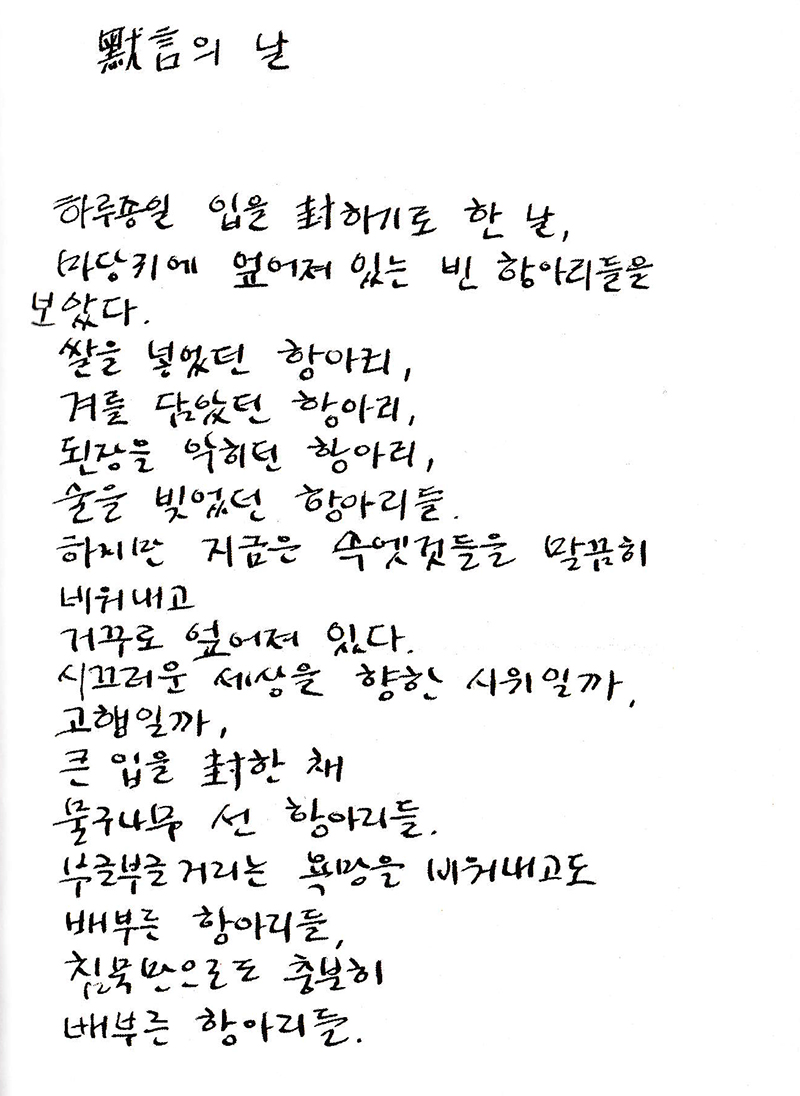 默言의 날
하루종일 입을 封하기로 한 날,
마당귀에 엎어져 있는 빈 항아리들을
보았다.
쌀을 넣었던 항아리,
겨를 담았던 항아리,
된장을 익히던 항아리,
술을 빚었던 항아리들.
하지만 지금은 속엣것들을 말끔히
비워내고
거꾸로 엎어져 있다.
시끄러운 세상을 향한 시위일까,
고행일까,
큰 입을 封한 채
물구나무 선 항아리들.
부글부글거리는 욕망을 비워내고도
배부른 항아리들,
침묵만으로도 충분히
배부른 항아리들.